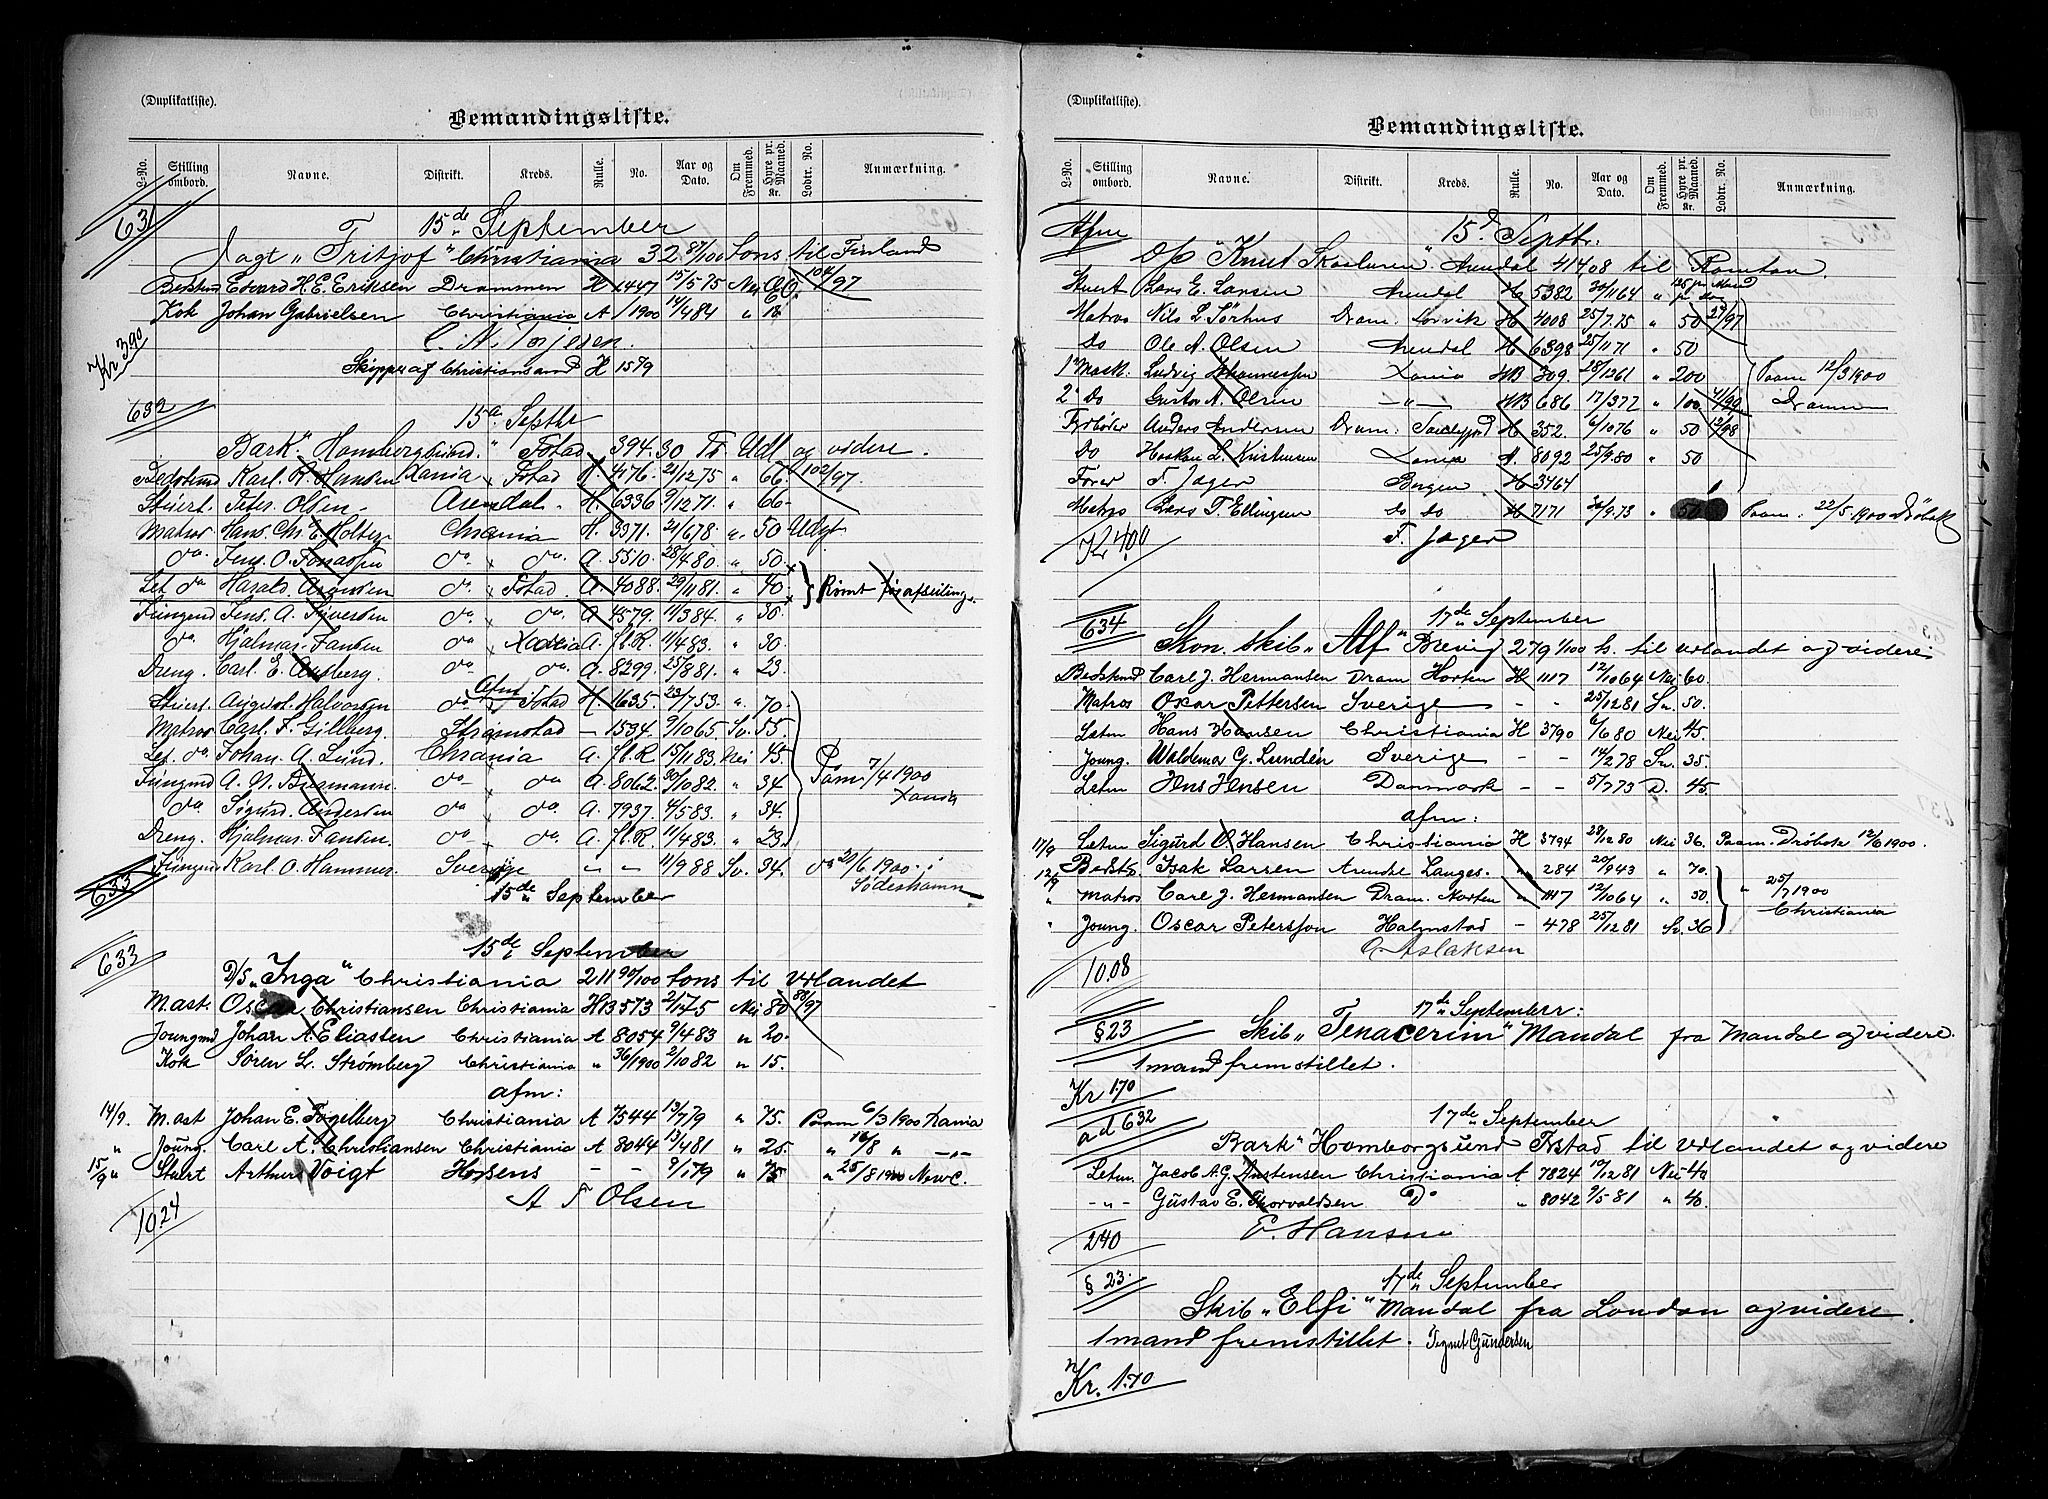 (Duplikatliste).
Bemandingsliste.
L-No. Stilling ombord. Navne. Distrikt. Kreds. Rulle. No. Aar og Dato. Om Fremmed. Hyre pr. Maaned. Kr. Lodtr. No. Anmærkning.
631 15de September
Jagt "Fritjof" Christiania 32 87/100 Tons til Finland
Bedstmd Edvard H. E. Eriksen Drammen H 1447 15/5 75 Nei 104/97
Kok Johan Gabrielsen Christiania A 1/1900 14/4 84 " 18
C. N. Torjesen.
Kr 3.90 Skipper af Christiansand H 1579
632 15d Septbr
Bark "Homborgsund" Fstad 394.30 Ts Udl og videre.
Bedstmd Karl R. Hansen Xania Fstad H. 476 21/12 75 " 66. 102/97.
Stuert. Peter Olsen Arendal H. 6336 9/12 71 " 66
Matros Hans Chr. E. Holberg Chrania H. 3371 21/6 78 " 50 Udgt
do. Jens. O. Jonassen do. do. A. 5510 28/4 80 " 50.
Let do Harald Arnesen do. Fstad. A. 4088. 29/11 81 " 40. Rømt før afseilings.
Jungmd Jens. A. Syversen do. do. A. 4579. 11/3 84. " 35.
do. Hjalmar Jansen do Xania A. fl.R. 11/4 83. " 30
Dreng. Carl. E. Amberg. do do. A. 8299. 25/8 81. " 23.
Afm
Stuert. August Halvorsen do Fstad H. 1635 23/7 53 " 70.
Matros Carl. F. Gillberg. Strømstad — 1534. 9/10 65. Sv. 55.
Let. do. Johan. A. Lund. Chrania A. fl.R 15/11 83. Nei 45.
Jungmd A. N. Bergmann. do do A. 8062. 30/10 82. " 34 Paam. 7/4 1900 Xania
do. Sigurd. Andersen do do. A. 7937. 4/5 83. " 34.
Dreng. Hjalmar Jansen. do do. A. fl.R. 11/4 83. " 23.
Jungmd Karl. O. Hammer. Sverige — — 11/9 88 Sv. 34. do 20/6 1900 i Söderhamn
633 15de September
633 15de September
D/S. "Inga" Christiania 211 90/100 tons til Udlandet
M.ast. Oscar Christiansen Christiania H 13573 2/1 45 Nei 80 88/97
Joungmd Johan A. Eliasten Christiania A 8054 9/4 83 " 20.
Kok Søren L. Strømberg Christiania " 36/1900 2/10 82 " 15.
afm:
14/9. M.ast Johan E. Fogelberg Christiania A 7544 13/7 79 " 75. Paam 6/3 1900 Xania
" Joung. Carl A. Christiansen Christiania A 8044 13/4 81 " 25. " 16/8 " —"—
15/9 " Stuert Arthur Voigt Horsens — — 9/1 79 " 75 " 25/8 1900 NewC.
A F Olsen
10.24
(Duplikatliste).
Bemandingsliste.
L-No. Stilling ombord. Navne. Distrikt. Kreds. Rulle. No. Aar og Dato. Om Fremmed. Hyre pr. Maaned. Kr. Lodtr. No. Anmærkning.
Afm 15d Septbr.
"Knut Skaaluren" Arendal 414 08 til
Stuert Lars E. Larsen Arendal H 5382 30/11 64 "
Matros Nils L. Sørhus Dram. Larvik H 4008 25/7. 75 " 50 27/97
do Ole A. Olsen Arendal H 6398 25/11 71 " 50
1 Mask. Ludvig Johannessen Xania MB 309. 28/12 61 " 200 Paam 12/3 1900
2 Do Gustav A. Olsen —"— MB 686 17/3 72 " 100 41/99 Dramn
Fyrbøter Anders Andersen Dram. H 352. 6/10 76 " 50 12/98
Do Haakon L. Kristensen Xania A. 8092 25/9. 80 " 50
Fører F. Jæger Bergen H 3464
Matros Lars T. Ellingsen do do H 7171 30/9. 73 " 50 Paam. 22/5. 1900 Drøbak
Kr 4.00 F. Jæger
634 17de September
Skon. skib "Alf" Brevig 279 1/100 h. til Udlandet og videre
Bedstmd Carl J. Hermansen Dram Horten H 1117 12/10 64 Nei 60.
Matros Oscar Pettersen Sverige — — 25/12 81 Sv. 50.
Letm Hans Hansen Christiania H 3790 6/6 80 Nei 45.
Joung. Waldemar G. Lundén Sverige — — 14/2 78 Sv. 35.
Letm Jens Jensen Danmark — — 5/7 73 D. 45.
afm:
17/9 Letm Sigurd O. Hansen Christiania H 3794 29/12 80 Nei 36. Paam. Drøbak 12/6 1900.
12/9 Bedsts. Isak Larsen Arendal Langes. " 284 20/9 43 " 70.
" Matros Carl J. Hermansen Dram. Horten " 1117 12/10 64 " 50 " 25/7 1900 Christiania
" Joung. Oscar Petersson Halmstad — 478 25/12 81 Sv. 36
Aslaksen
10.08
17de September:
§ 23 Skib "Tenacerim" Mandal fra Mandal og videre.
1 mand fremstillet.
Kr 1.70
ad 632 17de September
Bark "Homborgsund" Fstad til Udlandet og videre
Letm. Jacob A. G. Christiania A 7824 19/12 81 Nei 40
—"— Gustav E. Thorvaldsen Do " 8042 9/5 81 " 40.
240 E. Hansen
§ 23. 17de September
Skib "Elfi" Mandal fra London og videre.
1 mand fremstillet. Gundersen
Kr. 1.70